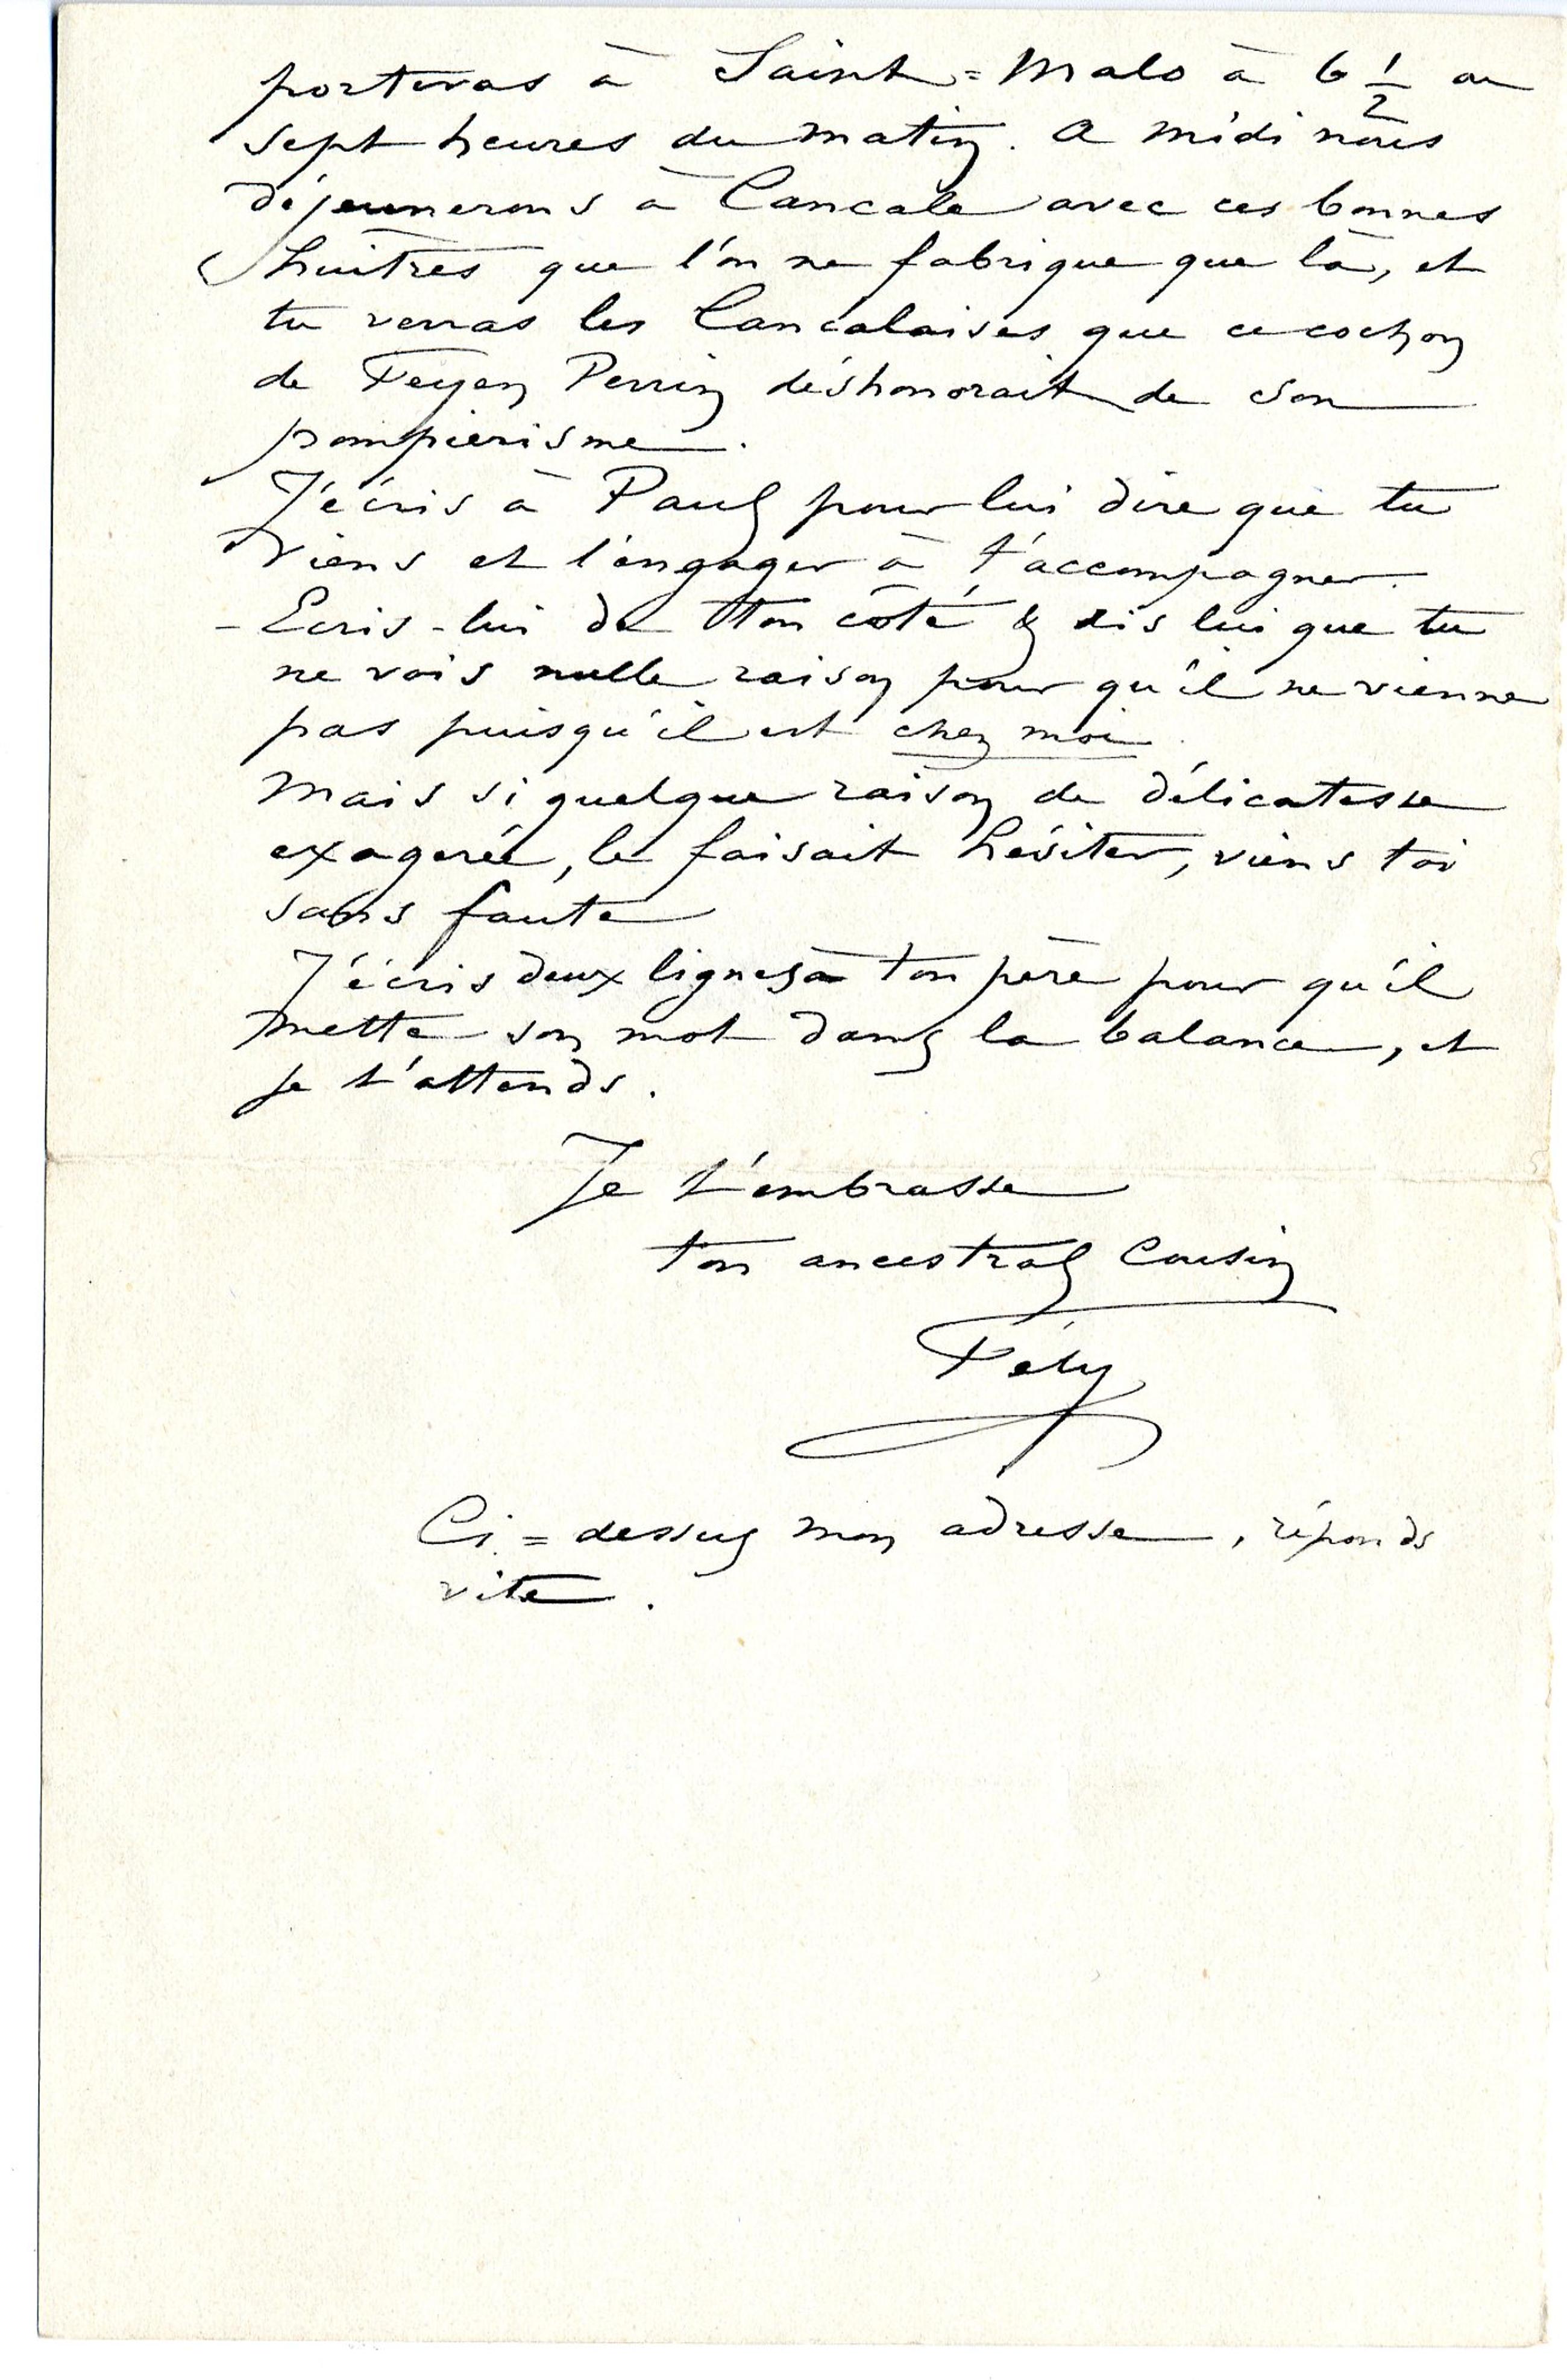 porteras à Saint=Malo à 6 1/2 ou
sept heures du matin. A midi nous
déjeunerons à Cancale avec ces bonnes
huîtres que l'on ne fabrique que là, et
tu verras les Cancalaises que ce cochon
de Feyen Perrin déshonorait de son
pompiérisme.
J'écris à Paul pour lui dire que tu
viens et l'engager à t'accompagner.
- Ecris-lui de ton côté & dis lui que tu
ne vois nulle raison pour qu'il ne vienne
pas puisqu'il est chez moi.
Mais si quelque raison de délicatesse
exagerée, le faisait hésiter, viens toi
sans faute
J'écris deux lignes à ton père pour qu'il
mette son mot dans la balance, et
je t'attends.
Je t'embrasse
ton ancestral Cousin
Fély
Ci=dessus mon adresse, réponds
vite.